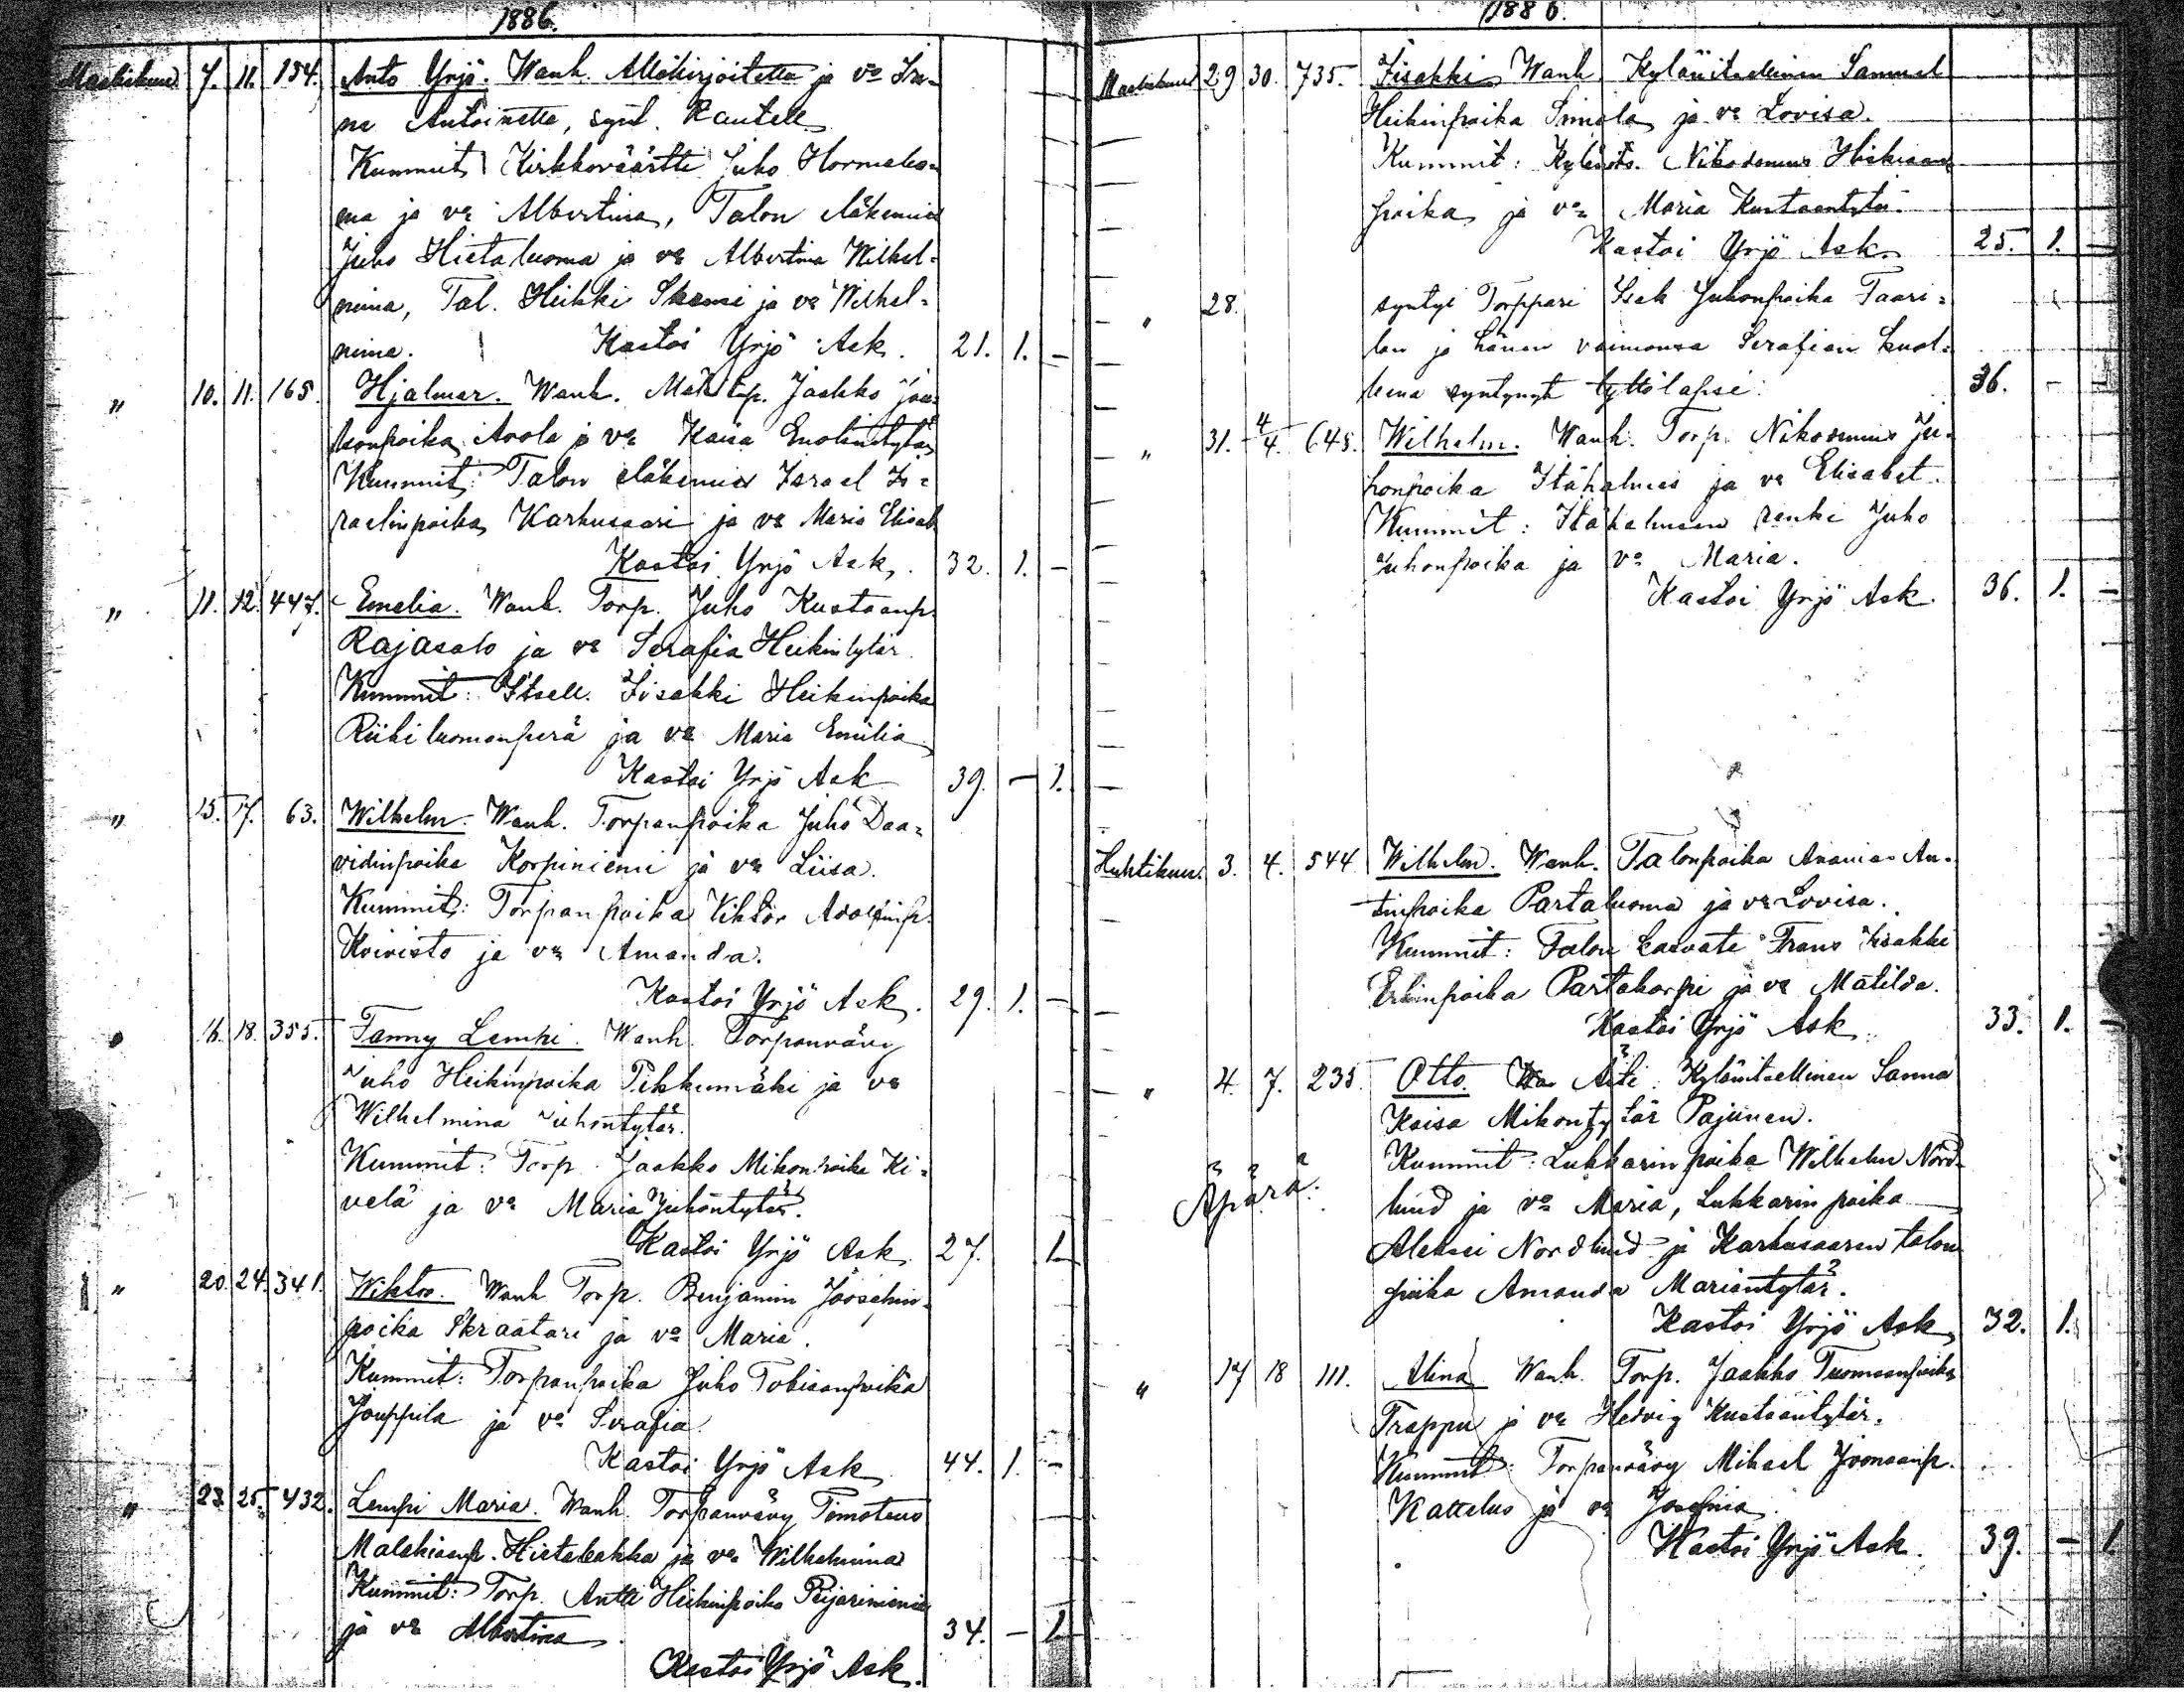 1886.
Maaliskuus 7. 11. 154. Anto Yrjö. Wanh. Allekirjoitettu ja vo Jen-
ne Antoinette, synt. Rautell
Kummit Kirkkoväärtti Juho Hormaluo-
ma ja vo Albertina, Talon eläkemies
Juho Hietaluoma ja vo Albertina Wilhel-
miina, Tal. Heikki ja vo Wilhel-
mina. Kastoi Yrjö Ask. 21. 1. -
" 10. 11. 165. Hjalmar. Wanh. Mäkitup. Jaakko Jaa-
konpoika Avola ja vo Kaisa Enokintytär
Kummit: Talon eläkemies Israel Is-
raelinpoika Karhusaari ja vo Maria Elisab
Kastoi Yrjö Ask. 32. 1. -
" 11. 12. 447. Emelia. Wanh. Torp. Juho Kustaanp.
Rajasalo ja vo Serafia Heikintytär.
Kummit: Itsell. Iisakki Heikinpoika
Riihiluomanperä ja vo Maria Emilia
Kastoi Yrjö Ask 39. - 1.
" 15. 17. 63. Wilhelm. Wanh. Torpanpoika Juho Daa-
vidinpoika Korpiniemi ja vo Liisa.
Kummit: Torpanpoika Viktor Adolfinp.
Koivisto ja vo Amanda.
Kastoi Yrjö Ask. 29. 1. -
" 16. 18. 355. Fanny Lempi. Wanh. Torpanvävy
Juho Heikinpoika Pikkumäki ja vo
Wilhelmina Juhontytär.
Kummit: Torp. Jaakko Mikonpoika Ki-
velä ja vo Maria Juhontytär.
Kastoi Yrjö Ask. 27. 1
" 20. 24. 341. Wiktor. Wanh. Torp. Benjamin Joosehin-
poika Skraatari ja vo Maria.
Kummit: Torpanpoika Juho Tobiaanpoika
Jouppila ja vo Serafia
Kastoi Yrjö Ask 44. 1. -
" 23. 25. 432. Lempi Maria. Wanh. Torpanvävy Timoteus
Malakiaanp. Hietalakka ja vo Wilhelmina
Kummit: Torp. Antti Heikinpoika
ja vo Albertina. 34. - 1.
Kastoi Yrjö Ask.
1886.
Maaliskuus 29 30. 735. Iisakki Wanh Kylänitsellinen Samuel
Heikinpoika ja vo Lovisa.
Kummit: Kylänits. Nikodemus
poika ja vo Maria Kustaantytär
Kastoi Yrjö Ask. 25. 1. -
" 28. syntyi Torppari Isak Juhonpoika Taari-
lan ja hänen vaimonsa Serafian kuol-
leena syntynyt tyttölapsi. 36. -
" 31. 4/4. 645. Wilhelm. Wanh. Torp. Nikodemus Ju-
honpoika Itähalmes ja vo Elisabet.
Kummit: Itähalmeen renki Juho
Juhonpoika ja vo Maria.
Kastoi Yrjö Ask. 36. 1. -
Huhtikuus. 3. 4. 544 Wilhelm. Wanh. Talonpoika Ananias An-
tinpoika Partaluoma ja vo Lovisa.
Kummit: Talon kasvate Frans Iisakki
Erkinpoika Partakorpi ja vo Matilda.
Kastoi Yrjö Ask. 33. 1. -
" 4. 7. 235. Otto. Äiti: Kylänitsellinen Sanna
Kaisa Mikontytär Pajunen.
Äpärä: Kummit: Lukkarin poika Wilhelm Nord-
lund ja vo Maria, Lukkarin poika
Aleksi Nordlund ja Karhusaaren talon
piika Amanda Mariantytär.
Kastoi Yrjö Ask 32. 1.
" 17 18 111. Alina Wanh. Torp. Jaakko Tuomaanpoika
Trappu ja vo Hedvig Kustaantytär.
Kummit: Torpanvävy Mikael Joonaanp.
Kattelus ja vo Josefina.
Kastoi Yrjö Ask. 39. - 1